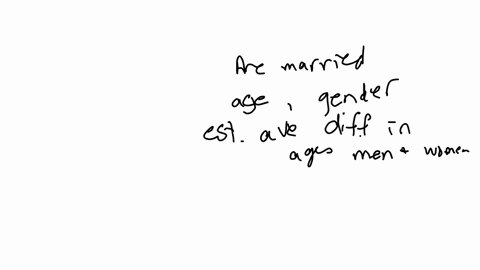 Are married
age, gender
est. ave diff in
ages men + women